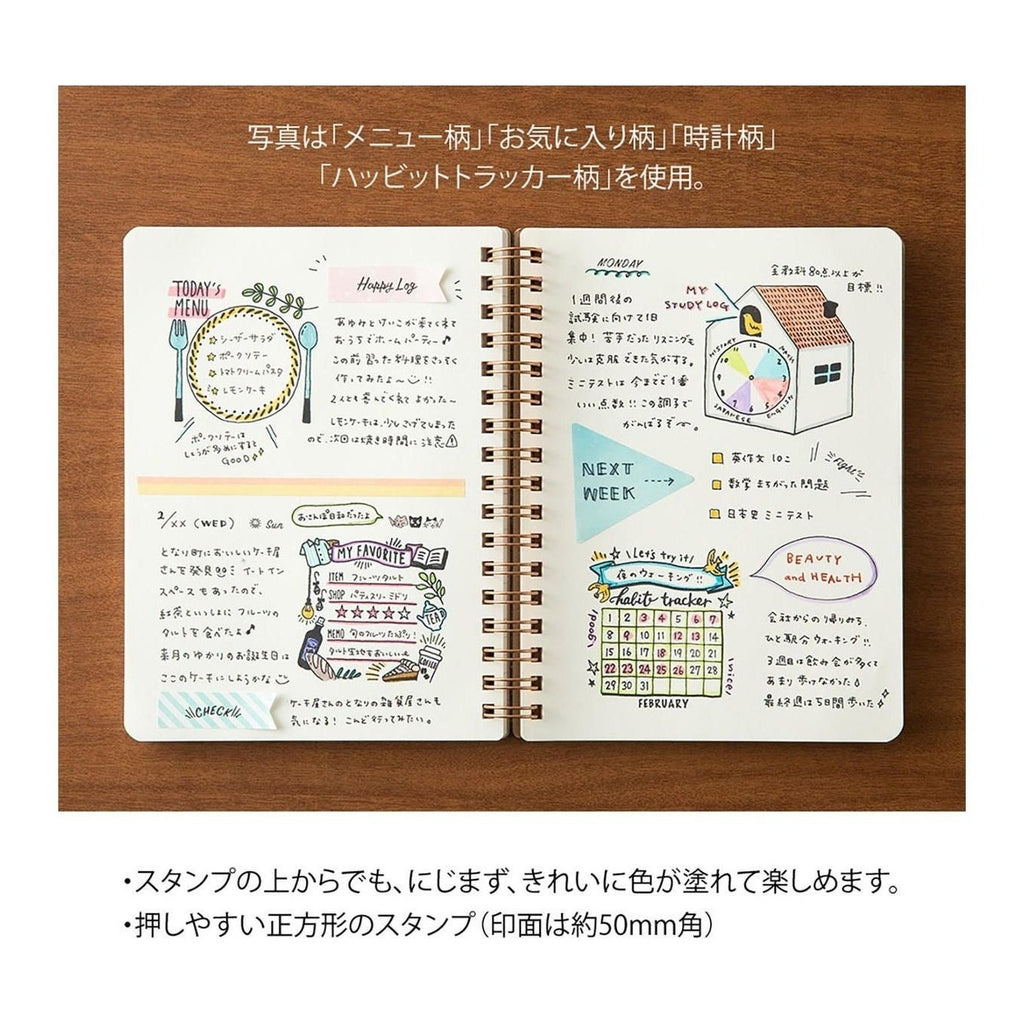 写真は「メニュー柄」「お気に入り柄」「時計柄」
「ハッピットトラッカー柄」を使用。
TODAY'S
MENU
シーザーサラダ
ポークソテー
トマトクリームパスタ
レモンケーキ
ポークソテーは
しょうが多めにすると
GOOD
Happy Log
あゆみとけいこが来てくれて
おうちでホームパーティー♪
この前習った料理をさっそく
作ってみたよ〜!!
2人とも喜んでくれてよかった〜
レモンケーキは、少しこげてしまった
ので、次回は焼き時間に注意
2/XX (WED)
Sun
おさんぽ日和だったよ
となり町においしいケーキ屋
さんを発見 イートイン
スペースもあったので、
紅茶といっしょに フルーツの
タルトを食べたよ♪
来月のゆかりのお誕生日は
ここのケーキにしようかな
CHECK
MY FAVORITE
ITEM フルーツタルト
SHOP パティスリー ミドリ
★★★★★
MEMO 旬のフルーツたっぷり!
タルト生地もおいしい
TEA
COFFEE
ケーキ屋さんのとなりの雑貨屋さんも
気になる! こんど行ってみたい。
MONDAY
1週間後の
試験に向けて1日
集中! 苦手だったリスニングも
少しは克服できた気がする。
ミニテストは今までで1番
いい点数!! この調子で
がんばるぞ〜。
MY
STUDY LOG
全教科80点以上が
目標!!
HISTORY
MATH
JAPANESE
ENGLISH
12 1 2 3 4 5 6 7 8 9 10 11
NEXT
WEEK
英作文 10こ
数学 まちがった問題
日本史 ミニテスト
Fight
Let's try it!
夜のウォーキング!!
habit tracker
good!
1 2 3 4 5 6 7
8 9 10 11 12 13 14
15 16 17 18 19 20 21
22 23 24 25 26 27 28
29 30 31
nice!
FEBRUARY
BEAUTY
and HEALTH
会社からの帰りみち、
ひと駅分ウォーキング!!
3週目は飲み会が多くて
あまり歩けなかった
最終週は5日間歩いた
・スタンプの上からでも、にじまず、きれいに色が塗れて楽しめます。
・押しやすい正方形のスタンプ（印面は約50mm角）